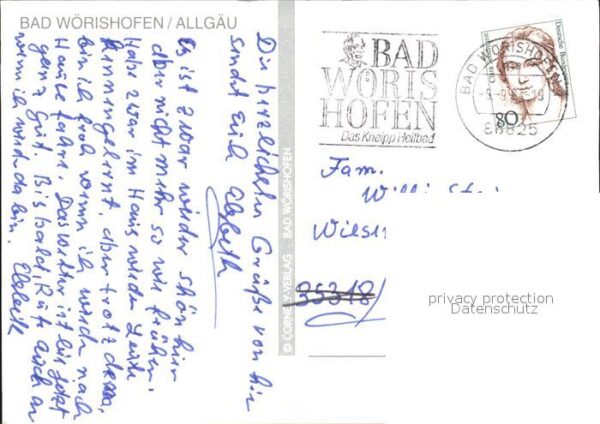 BAD WÖRISHOFEN / ALLGÄU
Die herzlichsten Grüße von hier
sendet Euch Elsbeth
Es ist zwar wieder schön hier
aber nicht mehr so wie früher.
Habe zwar im Haus wieder Leute
kennengelernt, aber trotzdem
bin ich froh wenn ich wieder nach
Hause fahre. Das Wetter ist bis jetzt
ganz gut. Bis bald, Rufe auch an
wenn ich wieder da bin. Elsbeth
© CORNELY-VERLAG · BAD WÖRISHOFEN
BAD
WÖRIS
HOFEN
Das Kneipp Heilbad
BAD WÖRISHOFEN
86825
Deutsche Bundespost
80
Fam.
Willi
Wiese
35318/
privacy protection
Datenschutz